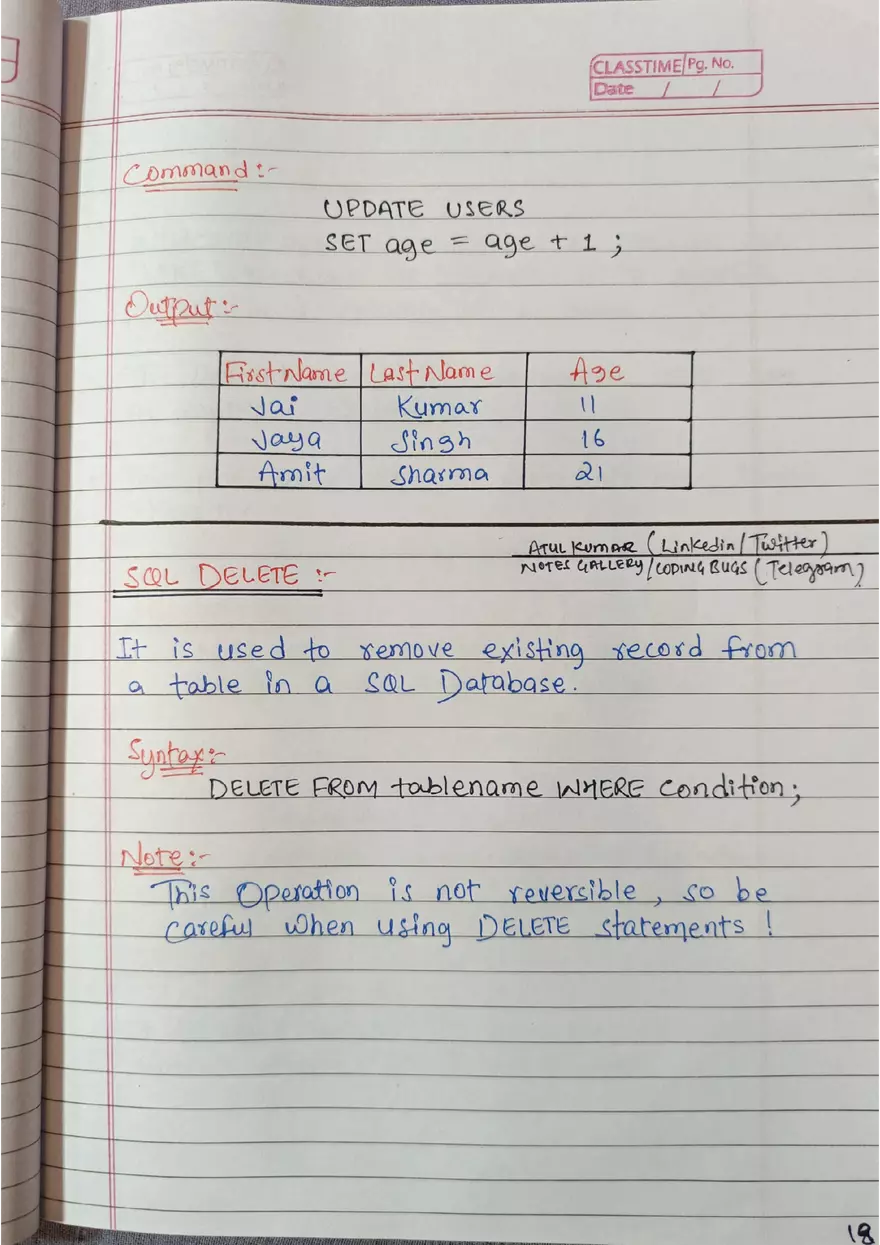 CLASSTIME Pg. No.
Date / /
Command :-
UPDATE USERS
SET age = age + 1 ;
Output :-
FirstName LastName Age
Jai Kumar 11
Jaya Singh 16
Amit Sharma 21
ATUL KUMAR (Linkedin / Twitter)
NOTES GALLERY / CODING BUGS (Telegram)
SQL DELETE :-
It is used to remove existing record from
a table in a SQL Database.
Syntax :-
DELETE FROM tablename WHERE Condition ;
Note :-
This Operation is not reversible , so be
careful when using DELETE statements !
18